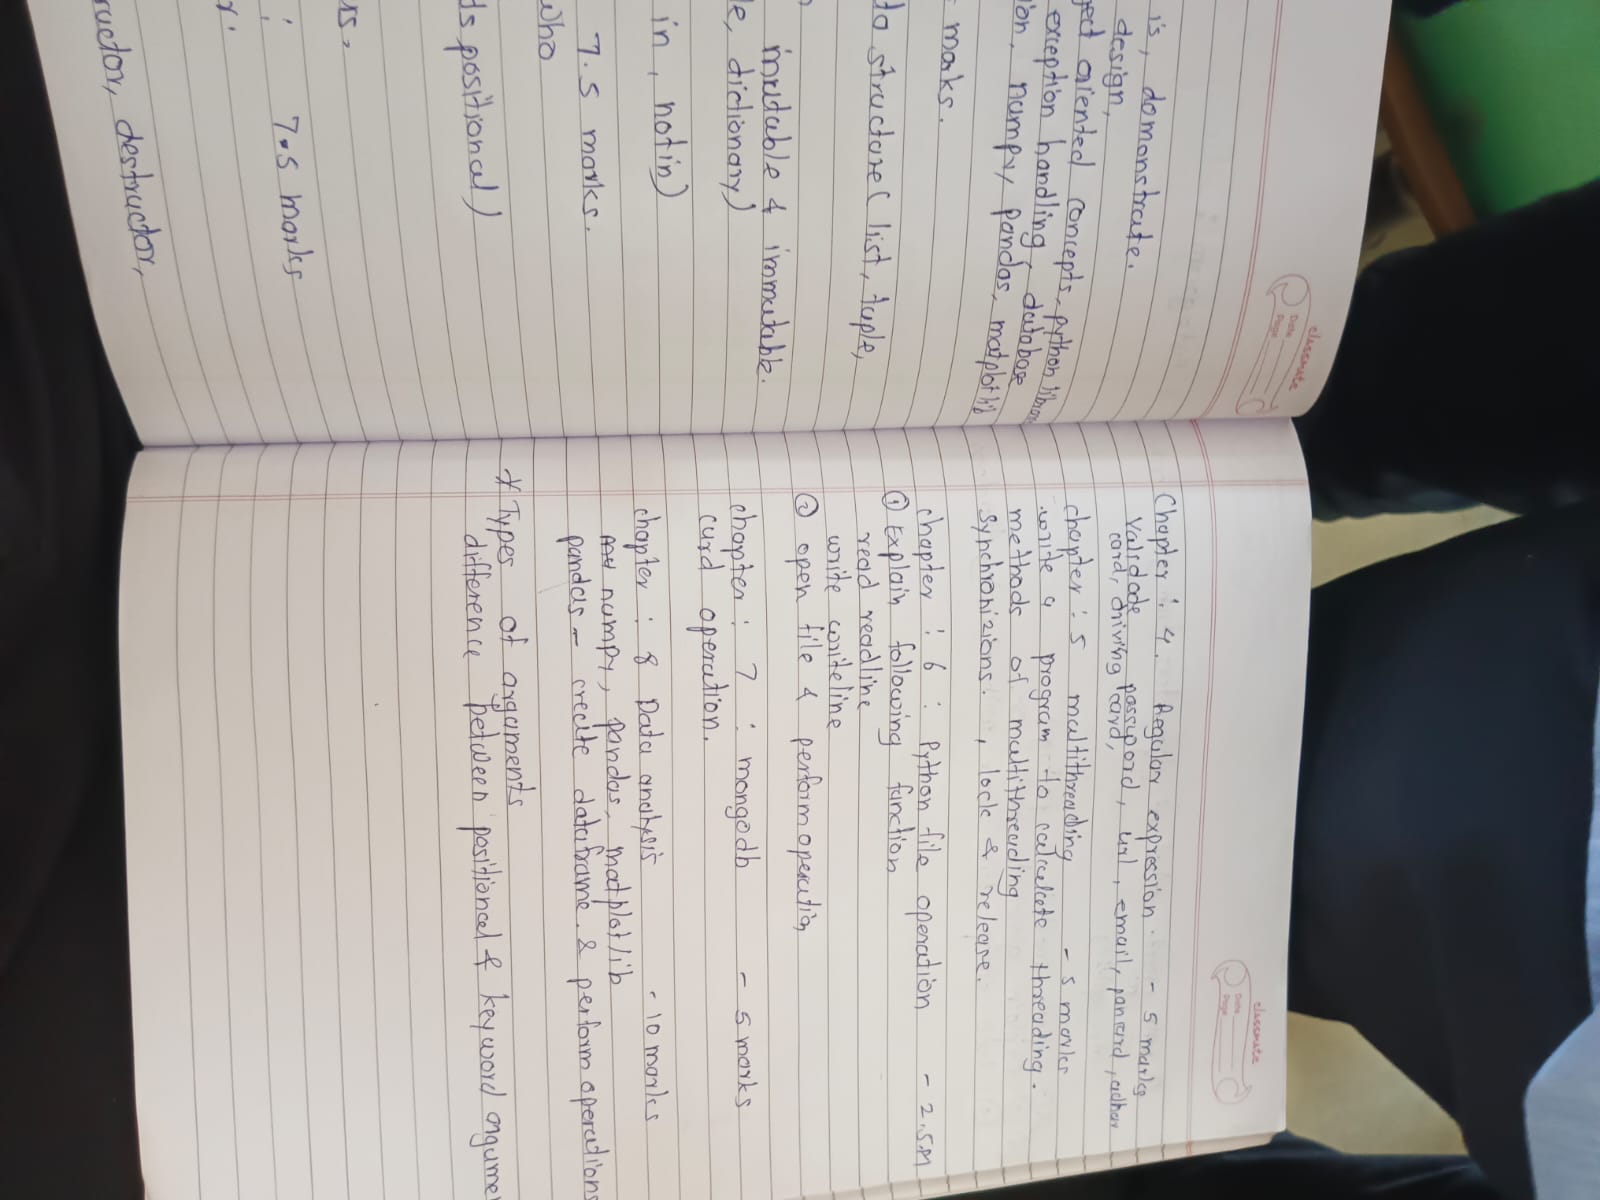 is, domonstrate.
design,
ject oriented concepts, python librar
exception handling, database
ion, numpy, pandas, matplotlib
marks.
structure ( list, tuple,
mutable & immutable.
dictionary)
in, notin)
7.5 marks.
who
ds positional)
7.5 marks
ructor, destructor,
classmate
Date
Page
classmate
Date
Page
Chapter : 4. Regular expression. - 5 marks
Validate password, url, email, pancard, adhar
card, driving card,
chapter : 5 multithreading - 5 marks
write a program to calculate threading.
methods of multithreading
synchronizions. , lock & release.
chapter : 6 : python file operation - 2.5M
① Explain following function
read readline
write writeline
② open file & perform operation
chapter : 7 : mongodb - 5 marks
curd operation.
chapter : 8 Data analysis - 10 marks
numpy, pandas, matplotlib
pandas - create dataframe. & perform operations
* Types of arguments
difference between positional & keyword argume